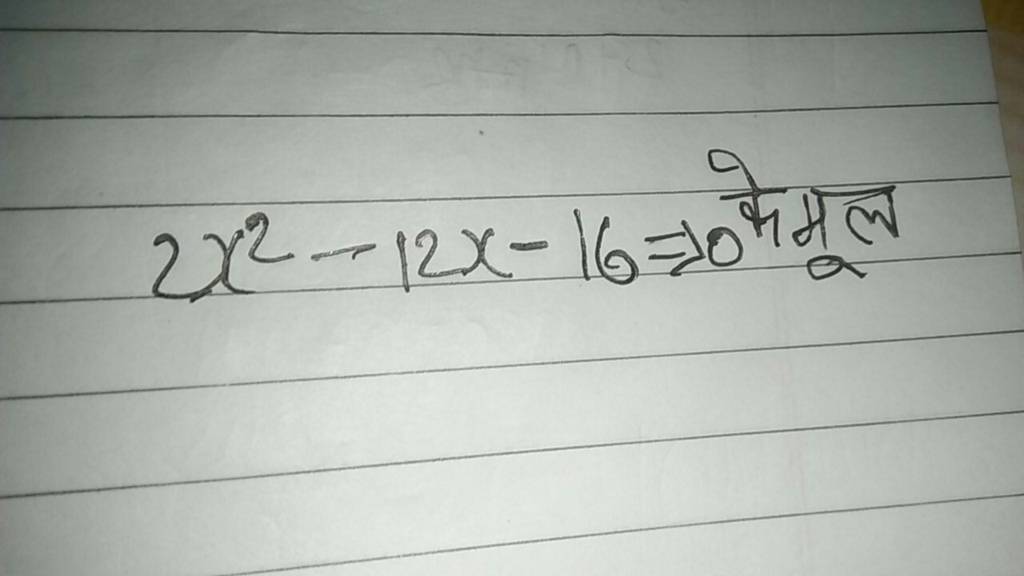 2x² - 12x - 16 = 0 के मूल